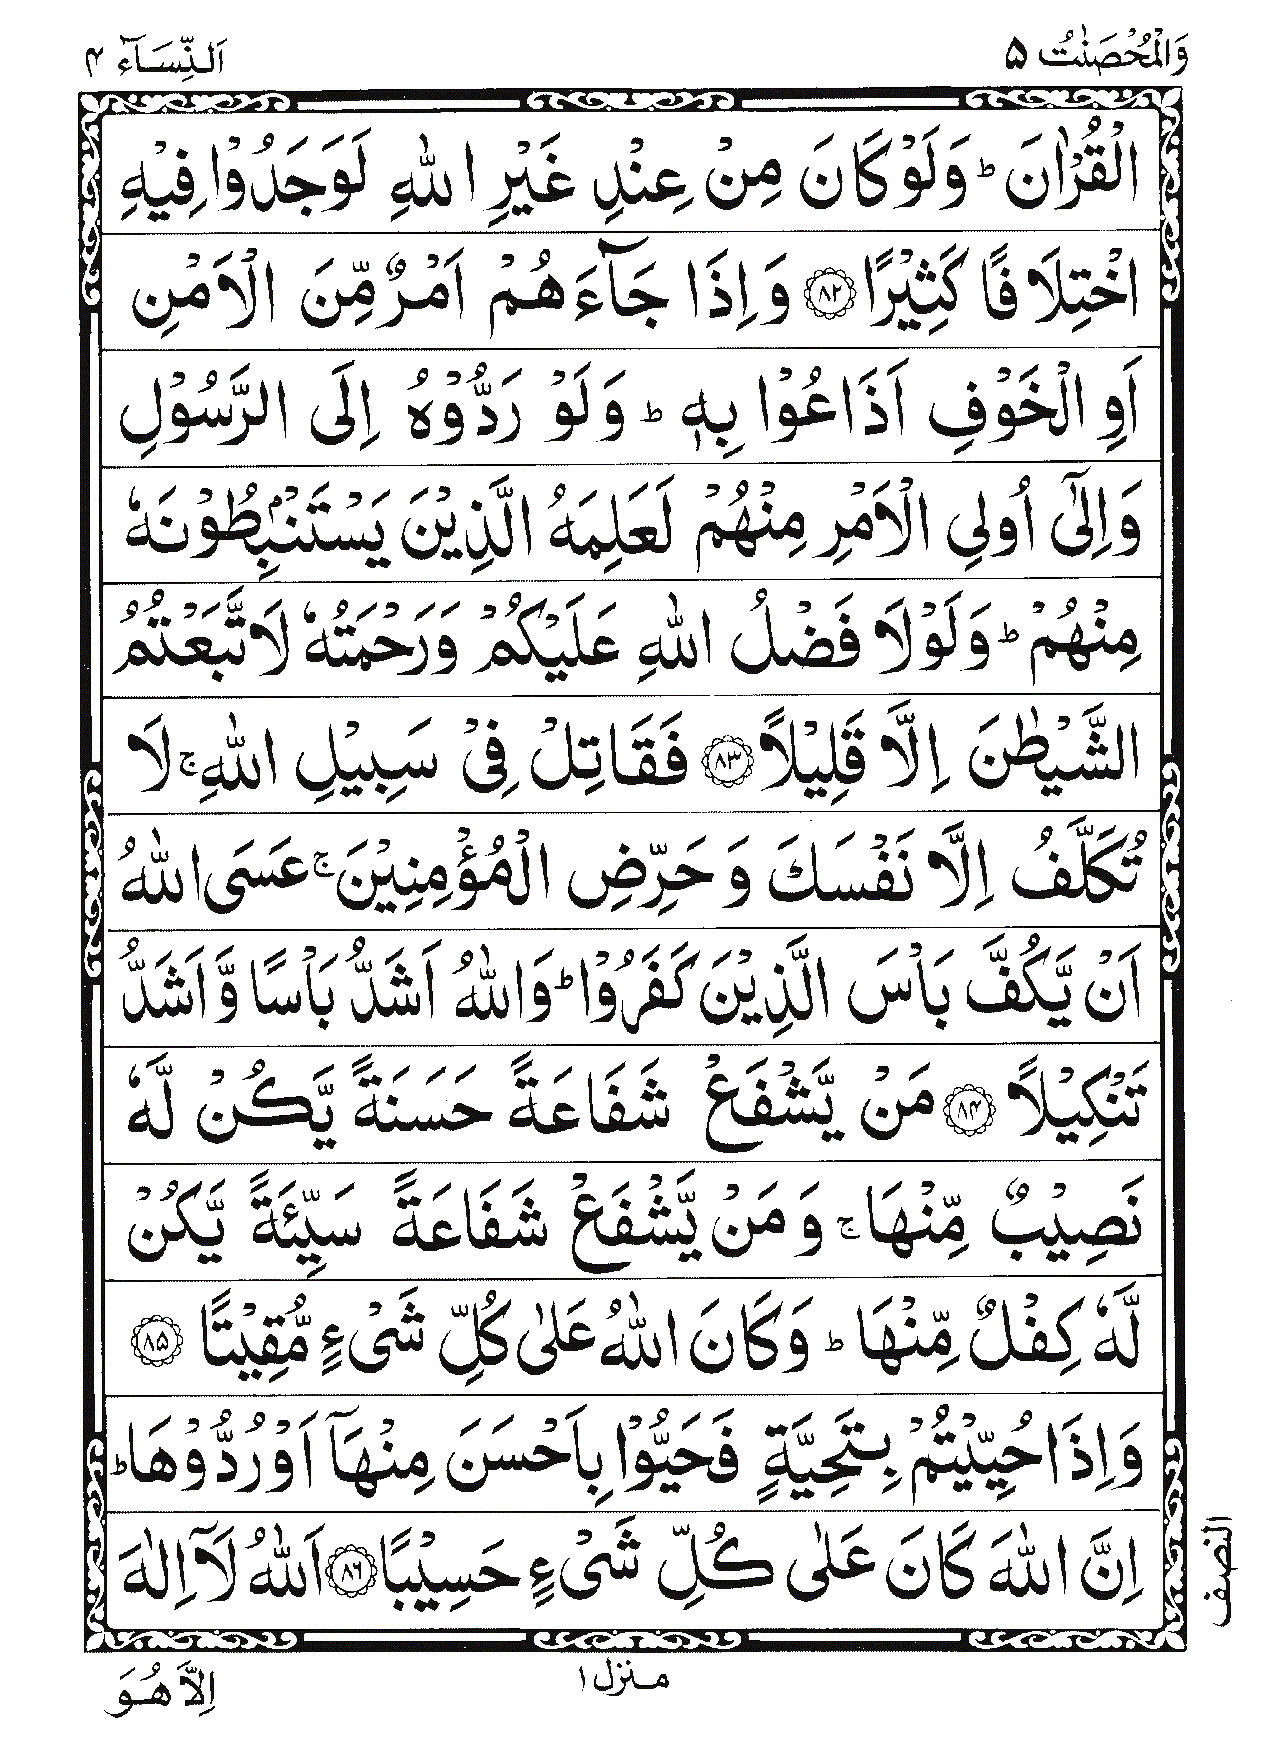 وَالْمُحْصَنٰتُ ۵
اَلنِّسَآء ۴
الْقُرْاٰنَ ؕ وَلَوْ كَانَ مِنْ عِنْدِ غَيْرِ اللّٰهِ لَوَجَدُوْا فِيْهِ
اخْتِلَافًا كَثِيْرًا ﴿۸۲﴾ وَاِذَا جَآءَهُمْ اَمْرٌ مِّنَ الْاَمْنِ
اَوِ الْخَوْفِ اَذَاعُوْا بِهٖ ؕ وَلَوْ رَدُّوْهُ اِلَى الرَّسُوْلِ
وَاِلٰٓى اُولِي الْاَمْرِ مِنْهُمْ لَعَلِمَهُ الَّذِيْنَ يَسْتَنْۢبِطُوْنَهٗ
مِنْهُمْ ؕ وَلَوْلَا فَضْلُ اللّٰهِ عَلَيْكُمْ وَرَحْمَتُهٗ لَاتَّبَعْتُمُ
الشَّيْطٰنَ اِلَّا قَلِيْلًا ﴿۸۳﴾ فَقَاتِلْ فِيْ سَبِيْلِ اللّٰهِ ۚ لَا
تُكَلَّفُ اِلَّا نَفْسَكَ وَ حَرِّضِ الْمُؤْمِنِيْنَ ۚ عَسَى اللّٰهُ
اَنْ يَّكُفَّ بَاْسَ الَّذِيْنَ كَفَرُوْا ؕ وَاللّٰهُ اَشَدُّ بَاْسًا وَّاَشَدُّ
تَنْكِيْلًا ﴿۸۴﴾ مَنْ يَّشْفَعْ شَفَاعَةً حَسَنَةً يَّكُنْ لَّهٗ
نَصِيْبٌ مِّنْهَا ۚ وَ مَنْ يَّشْفَعْ شَفَاعَةً سَيِّئَةً يَّكُنْ
لَّهٗ كِفْلٌ مِّنْهَا ؕ وَكَانَ اللّٰهُ عَلٰى كُلِّ شَيْءٍ مُّقِيْتًا ﴿۸۵﴾
وَاِذَا حُيِّيْتُمْ بِتَحِيَّةٍ فَحَيُّوْا بِاَحْسَنَ مِنْهَآ اَوْ رُدُّوْهَا ؕ
اِنَّ اللّٰهَ كَانَ عَلٰى كُلِّ شَيْءٍ حَسِيْبًا ﴿۸۶﴾ اَللّٰهُ لَآ اِلٰهَ
النصف
منزل ۱
اِلَّا هُوَ